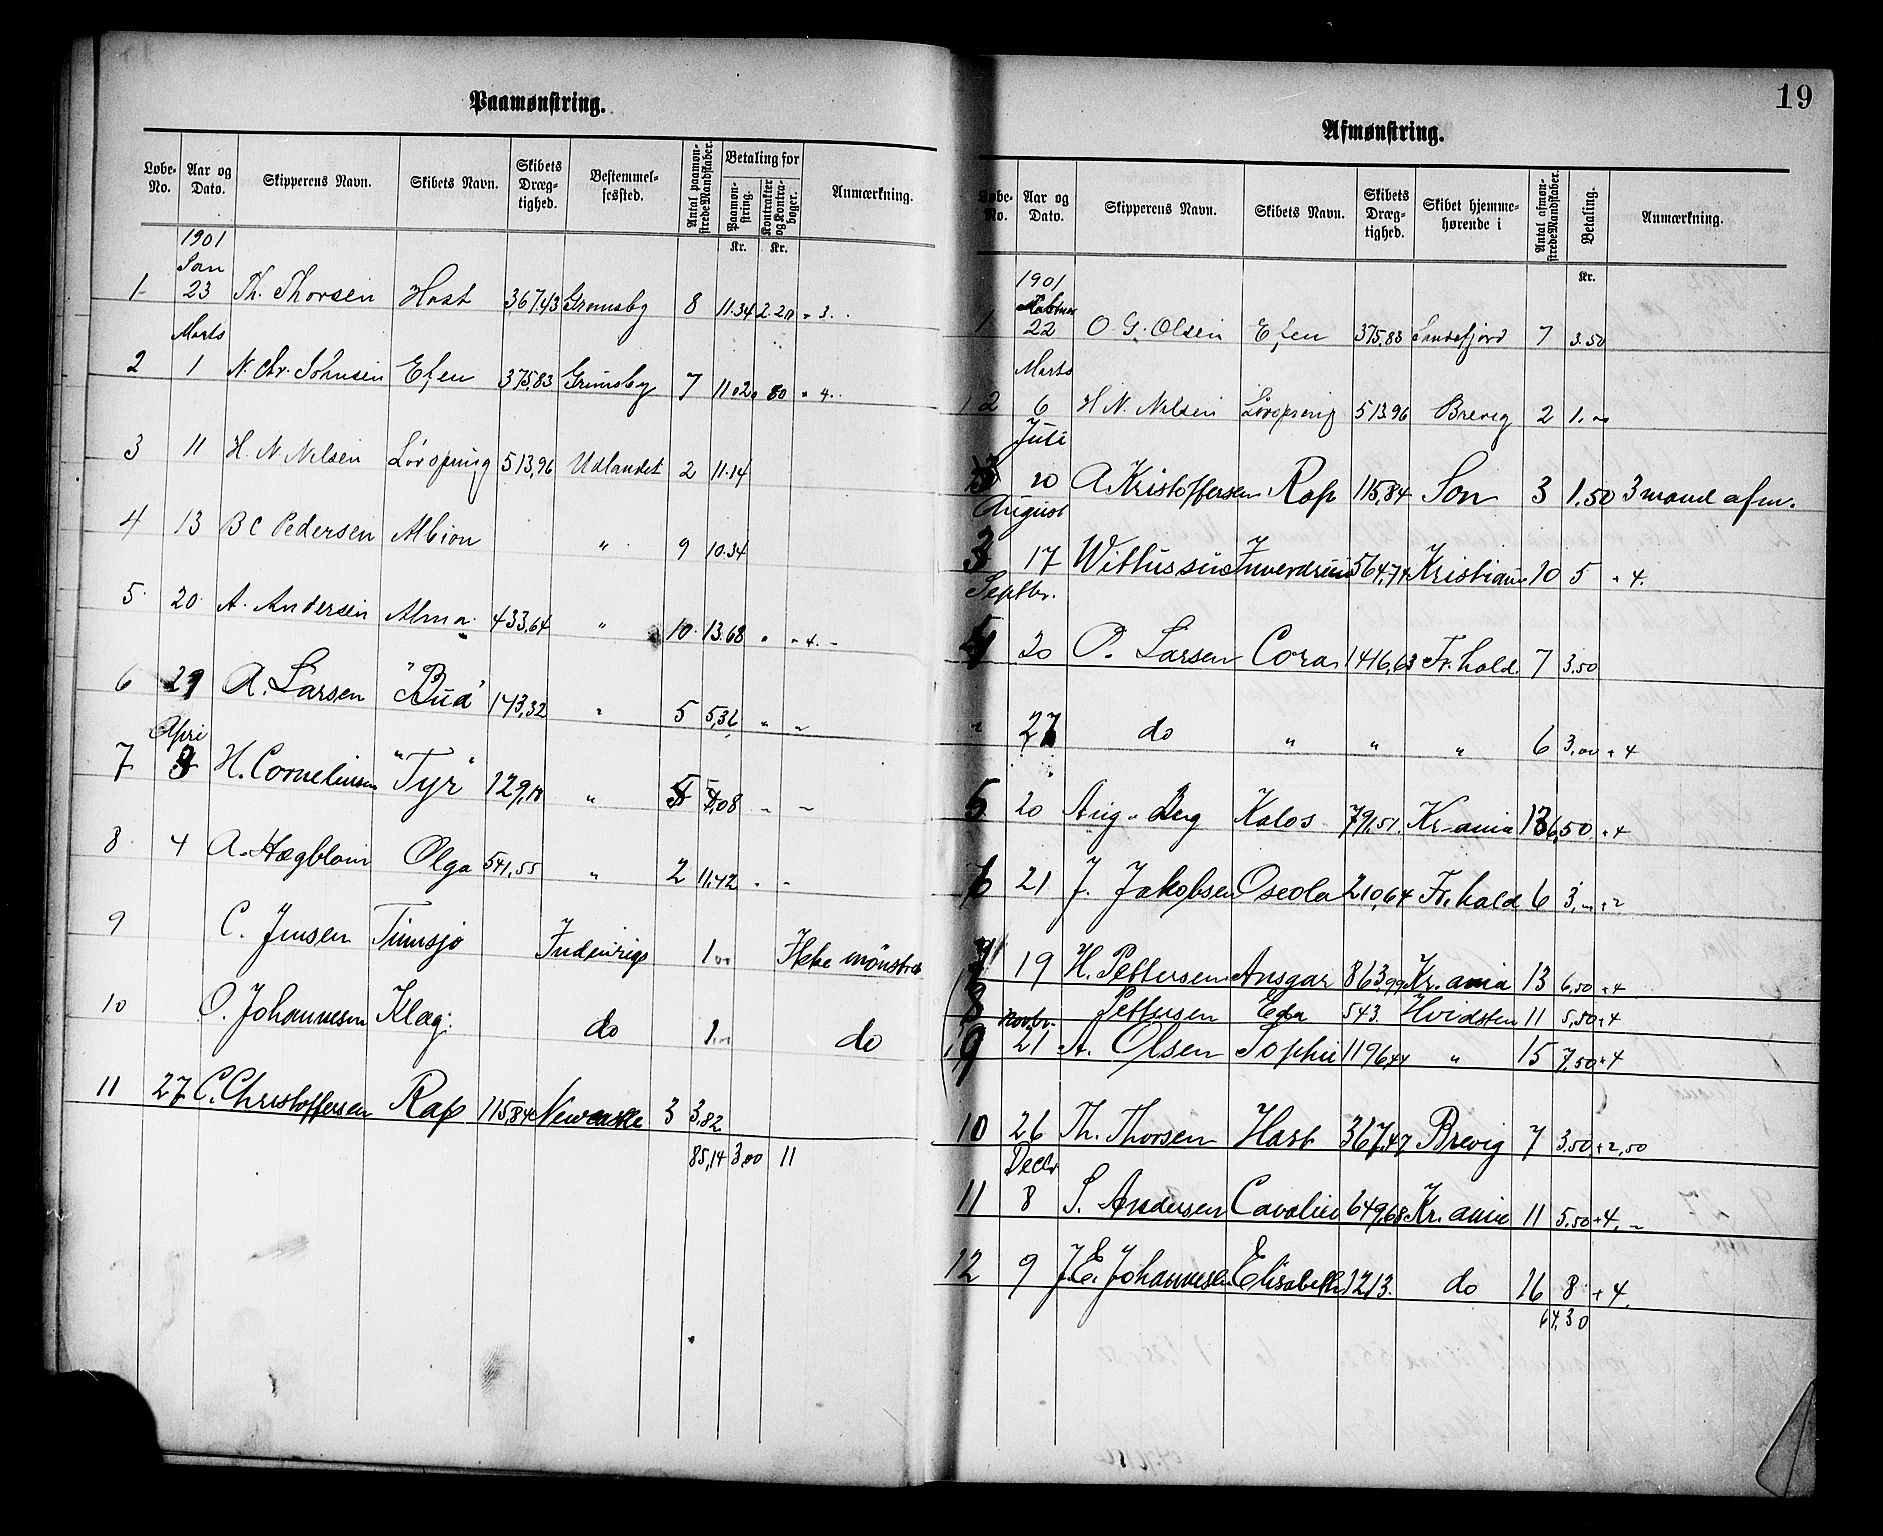 19
Paamønstring.
Løbe-No. Aar og Dato. Skipperens Navn. Skibets Navn. Skibets Dræg-tighed. Bestemmel-sessted. Antal paamøn-strede Mandskaber. Betaling for Paamøn-string. Kr. Kontrakter og Kontra-bøger. Kr. Anmærkning.
1901
Jan
1 23 Th. Thorsen Hast 367,43 Gromsby 8 11.34 2.20 " 3.
Marts
2 1 N. Chr. Johnsen Efen 375,83 Grimsby 7 11.02 " 80 " 4.
3 11 H. N. Nilsen Lövspring 513,96 Udlandet 2 11.14
4 13 B C Pedersen Albion " 9 10.34
5 20 A. Andersen Alma 433,64 " 10 13.68 " " 4. -
6 29 A. Larsen "Bud" 143,32 " 5 5,36 " "
Apri
7 3 H. Corneliusen "Tyr" 129,18 " 5 5,08 - -
8 4 A. Hægblom Olga 541,55 " 2 11,42 " -
9 C. Jensen Timsjø Indenrigs 1.00 Ikke mönstret
10 O. Johannesen Klag: do 1.00 do
11 27 C. Christoffersen Rap 115,84 Newcastle 3 3,82
85,14 3,00 11
Afmønstring.
Løbe-No. Aar og Dato. Skipperens Navn. Skibets Navn. Skibets Dræg-tighed. Skibet hjemme-hørende i Antal afmøn-strede Mandskaber. Betaling. Kr. Anmærkning.
1901
1 22 O. G. Olsen Efen 375,83 Sandefjord 7 3.50
Marts
2 6 H N. Nilsen Lövspring 513,96 Brevig 2 1.00
Juli
20 A. Kristoffersen Rap 115,84 Son 3 1.50 3 mand afm.
August
3 17 Kristiania 10 5 " 4.
Septbr.
4 20 P. Larsen Cora 1416,63 Fr. hald. 7 3,50
" 27 do " " " 6 3,00 + 4
5. 20 Aug. Berg Kalos 791,51. Kr. ania 13 6,50 + 4
6 21 J. Jakobsen Oseola 210,64 Fr. hald 6 3,00 + 2
7 19 H. Pettersen Ansgar 863,99 Kr. ania 13 6,50 + 4
8 Pettersen Eda 543. Hvidsten 11 5,50 + 4
Novbr.
9 21 A. Olsen Sophie 1196,44 " 15 7,50 + 4
10 26 Th. Thorsen Hast 367,47 Brevig 7 3.50 + 2,50
Decbr
11 8 S. Andersen Cavalier 649,68 Kr. ania 11 5,50 + 4. -
12 9 J. E. Johannesen Elisabeth 1213. do 16 8 + 4.
64,30